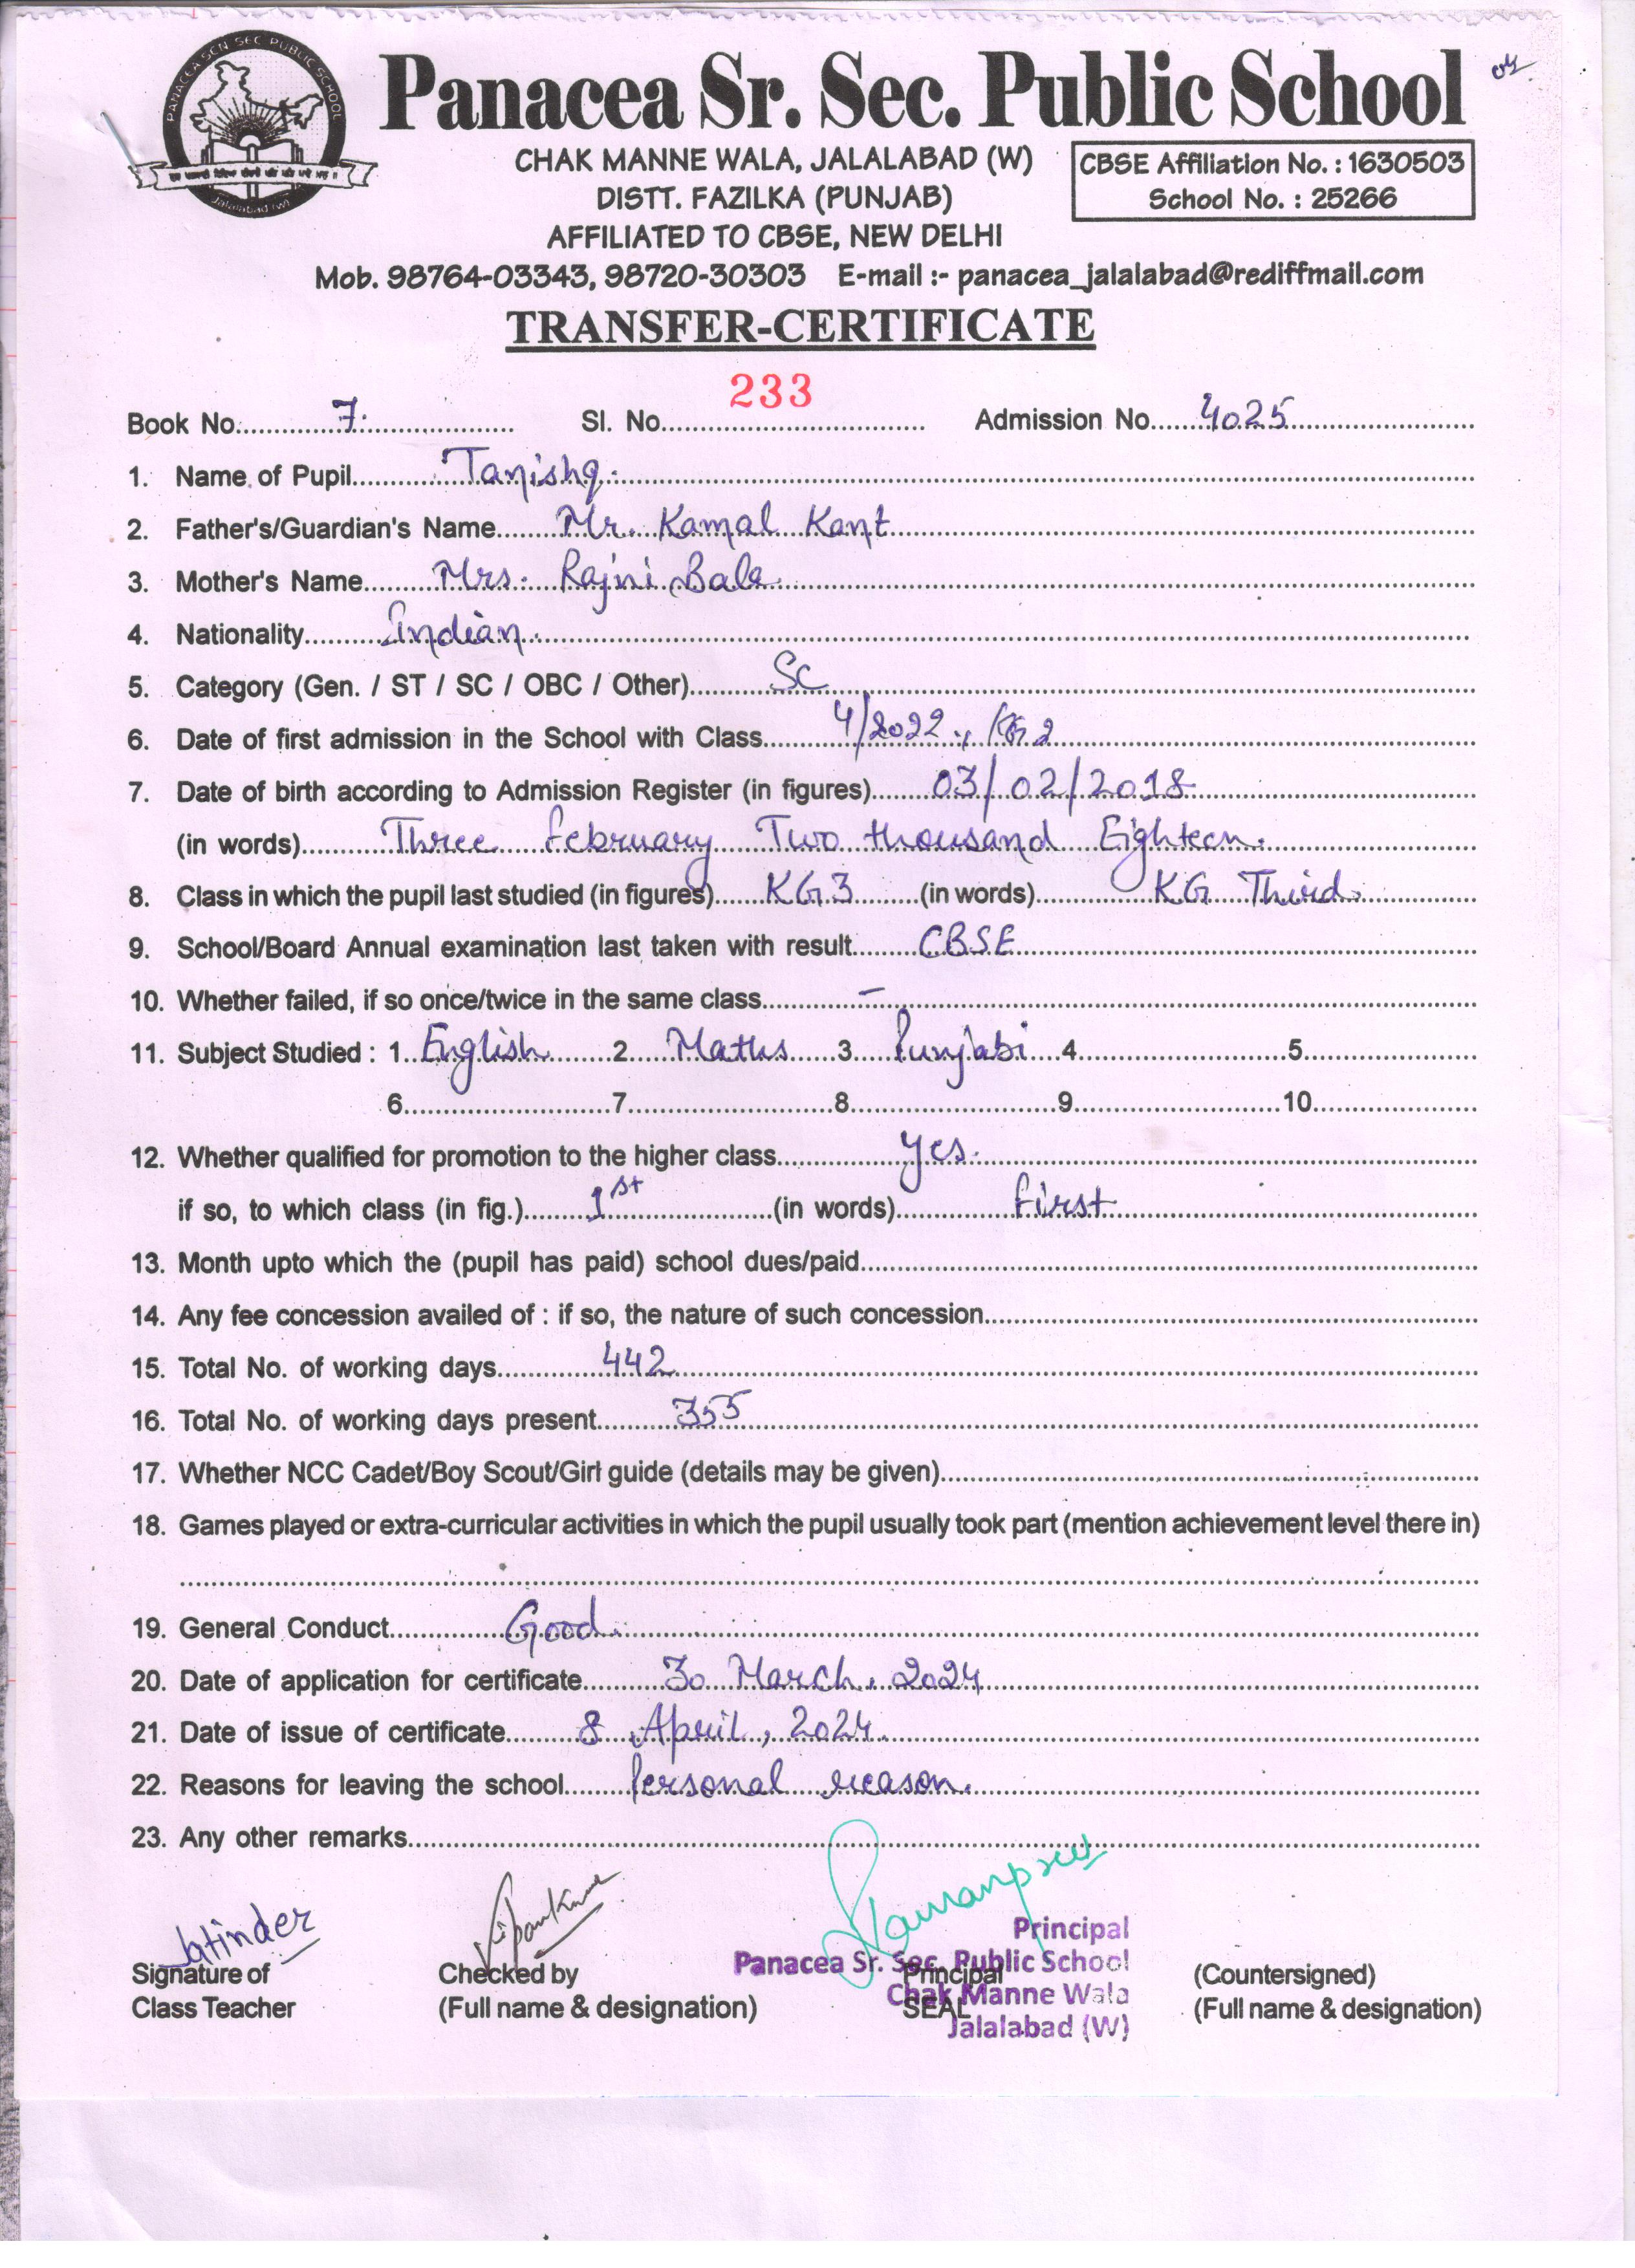 PANACEA SCN SEC PUBLIC SCHOOL
Jalalabad (W)
Panacea Sr. Sec. Public School
CHAK MANNE WALA, JALALABAD (W)
DISTT. FAZILKA (PUNJAB)
AFFILIATED TO CBSE, NEW DELHI
CBSE Affiliation No. : 1630503
School No. : 25266
Mob. 98764-03343, 98720-30303 E-mail :- panacea_jalalabad@rediffmail.com
TRANSFER-CERTIFICATE
Book No. 7. Sl. No. 233 Admission No. 4025
1. Name of Pupil Tanishq.
2. Father's/Guardian's Name Mr. Kamal Kant
3. Mother's Name Mrs. Rajni Bala
4. Nationality Indian.
5. Category (Gen. / ST / SC / OBC / Other) SC
6. Date of first admission in the School with Class 4/2022., KG 2
7. Date of birth according to Admission Register (in figures) 03/02/2018
(in words) Three February Two thousand Eighteen.
8. Class in which the pupil last studied (in figures) KG 3 (in words) KG Third.
9. School/Board Annual examination last taken with result CBSE
10. Whether failed, if so once/twice in the same class –
11. Subject Studied : 1. English 2. Maths 3. Punjabi 4. 5.
6. 7. 8. 9. 10.
12. Whether qualified for promotion to the higher class yes.
if so, to which class (in fig.) 1st (in words) first
13. Month upto which the (pupil has paid) school dues/paid
14. Any fee concession availed of : if so, the nature of such concession
15. Total No. of working days 442
16. Total No. of working days present 355
17. Whether NCC Cadet/Boy Scout/Girl guide (details may be given)
18. Games played or extra-curricular activities in which the pupil usually took part (mention achievement level there in)
19. General Conduct Good.
20. Date of application for certificate 30 March, 2024
21. Date of issue of certificate 8 April, 2024.
22. Reasons for leaving the school Personal reason.
23. Any other remarks
Jatinder
Signature of
Class Teacher
Checked by
(Full name & designation)
Principal
Panacea Sr. Sec. Public School
Chak Manne Wala
Jalalabad (W)
Principal
SEAL
(Countersigned)
(Full name & designation)